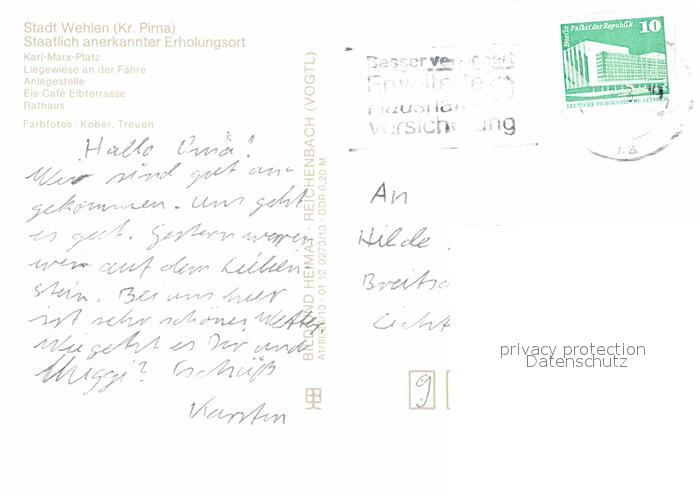 Stadt Wehlen (Kr. Pirna)
Staatlich anerkannter Erholungsort
Karl-Marx-Platz
Liegewiese an der Fähre
Anlegestelle
Eis-Café Elbterrasse
Rathaus
Farbfotos: Kober, Treuen
Hallo Oma!
Wir sind gut an-
gekommen. Uns geht
es gut. Gestern waren
wir auf dem Lilien-
stein. Bei uns hier
ist sehr schönes Wetter.
Wie geht es Dir und
Muggi? Tschüß
Karsten
BILD UND HEIMAT · REICHENBACH (VOGTL)
01 12 0273/13 · DDR 0,20 M
Besser versichert
Erweiterte
Haushalt
versicherung
Berlin Palast der Republik 10
DEUTSCHE DEMOKRATISCHE REPUBLIK
An
Hilde
Breitsc
Licht
9
privacy protection
Datenschutz